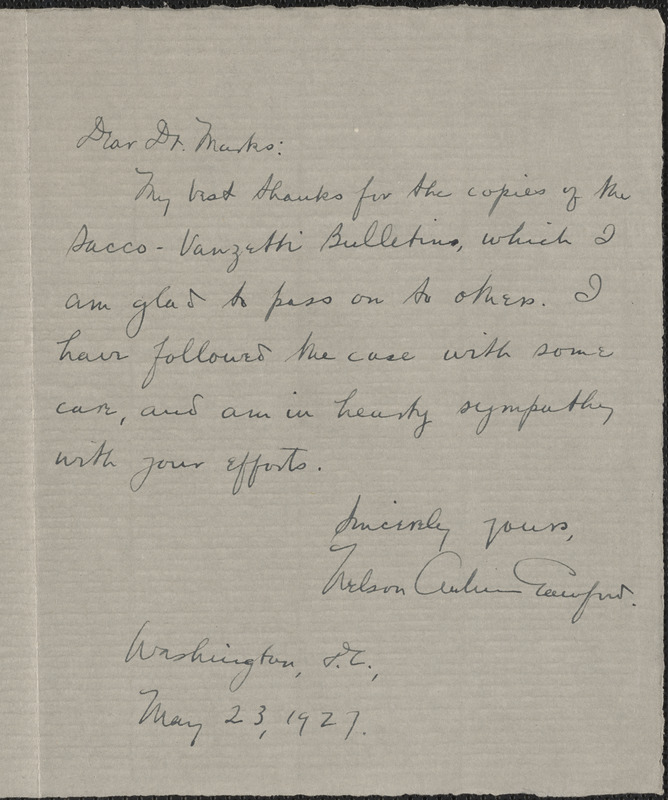 Dear Dr. Marks:
My best thanks for the copies of the
Sacco-Vanzetti Bulletins, which I
am glad to pass on to others. I
have followed the case with some
care, and am in hearty sympathy
with your efforts.
Sincerely yours,
Nelson Antrim Crawford.
Washington, D.C.,
May 23, 1927.